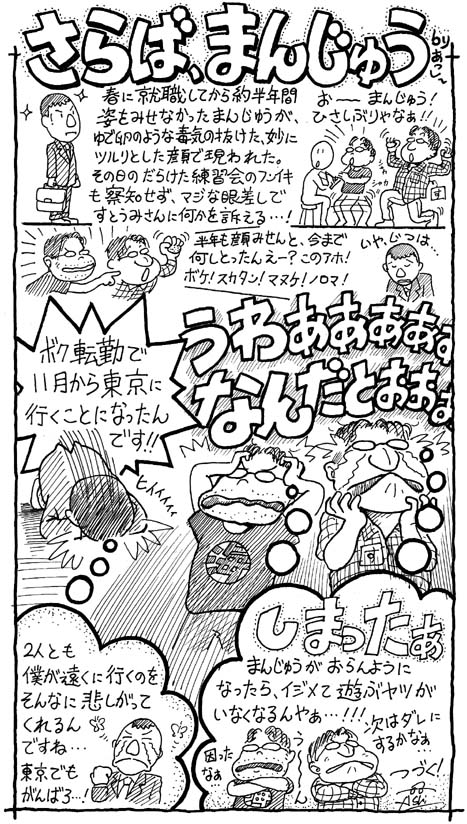 さらば、まんじゅう
by
あし〜
春に就職してから約半年間
姿をみせなかったまんじゅうが、
ゆで卵のような毒気の抜けた、妙に
ツルリとした顔で現われた。
その日のだらけた練習会のフンイキ
も察知せず、マジな眼差しで
すとうみさんに何かを訴える…!
お〜〜 まんじゅう!
ひさしぶりやなぁ!!
半年も顔みせんと、今まで
何しとったんえー? このアホ!
ボケ!スカタン!マヌケ!ノロマ!
いや、じつは…
ボク転勤で
11月から東京に
行くことになったん
です!!
うわぁぁぁぁぁ
なんだとぉぉぉ
ヒイィィィ
2人とも
僕が遠くに行くのを
そんなに悲しがって
くれるん
ですね…
東京でも
がんばろ…!
しまったぁ
まんじゅうが おらんように
なったら、イジメて遊ぶヤツが
いなくなるんやぁ…!!!
次はダレに
するかなぁ
困った
なぁ
うーん
つづく!